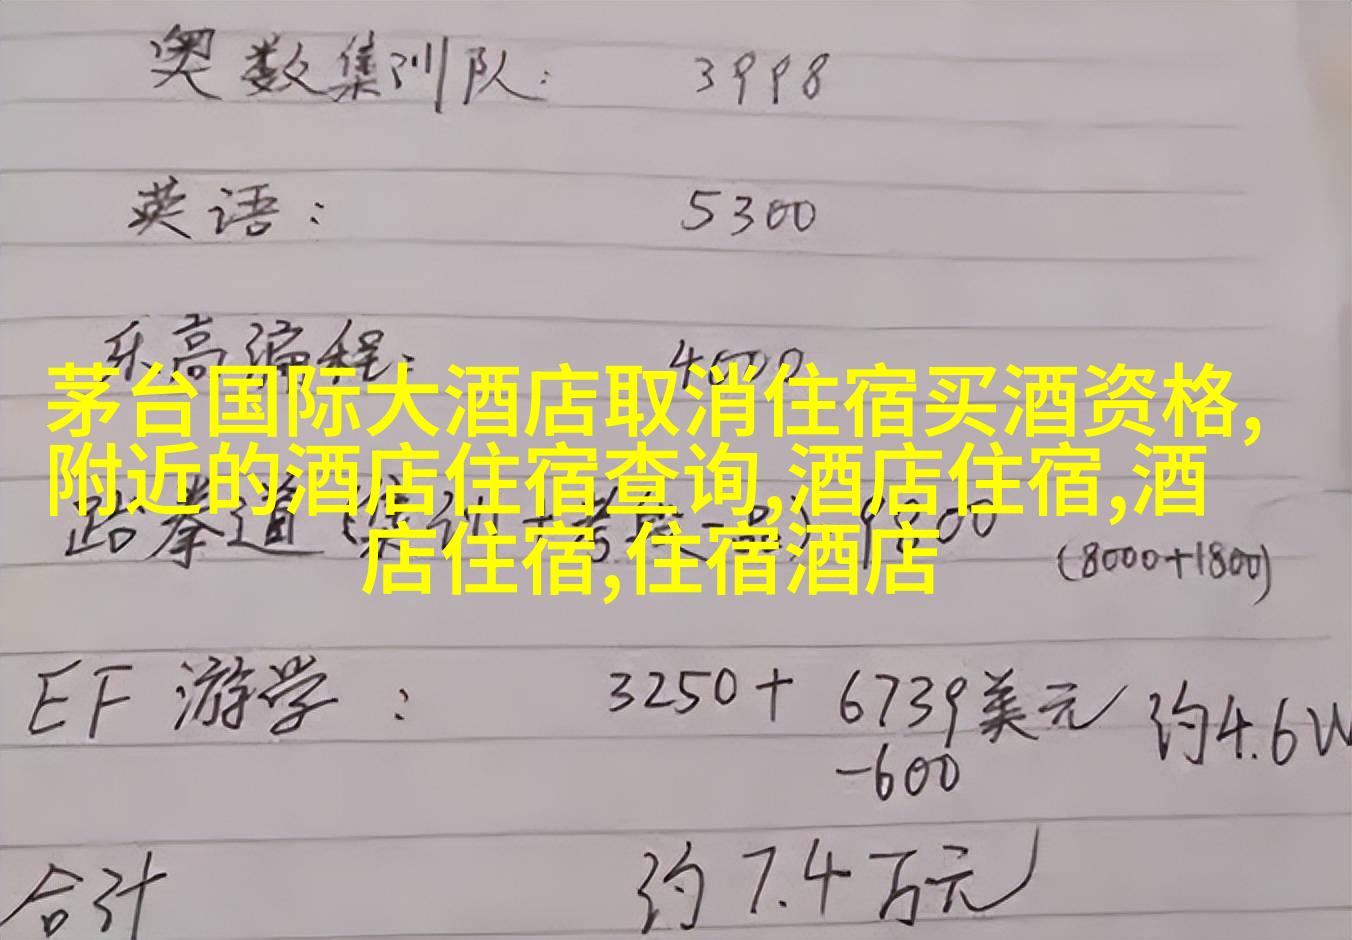 奥数集训队: 3998
英语: 5300
乐高编程: 4500
茅台国际大酒店取消住宿买酒资格,
附近的酒店住宿查询,酒店住宿,酒
店住宿,住宿酒店
跆拳道 9800
(8000+1800)
EF 游学: 3250+ 6739美元 约4.6W
-600
合计 约7.4万元